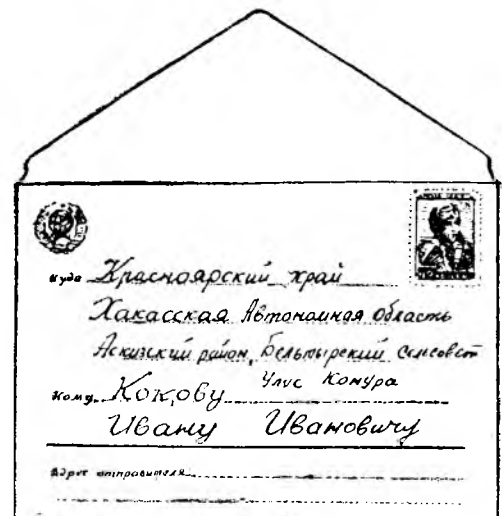 Куда Красноярский край
Хакасская Автономная область
Аскизский район, Бельтырский сельсовет
Улус Комура
Кому Кокову
Ивану Ивановичу
Адрес отправителя